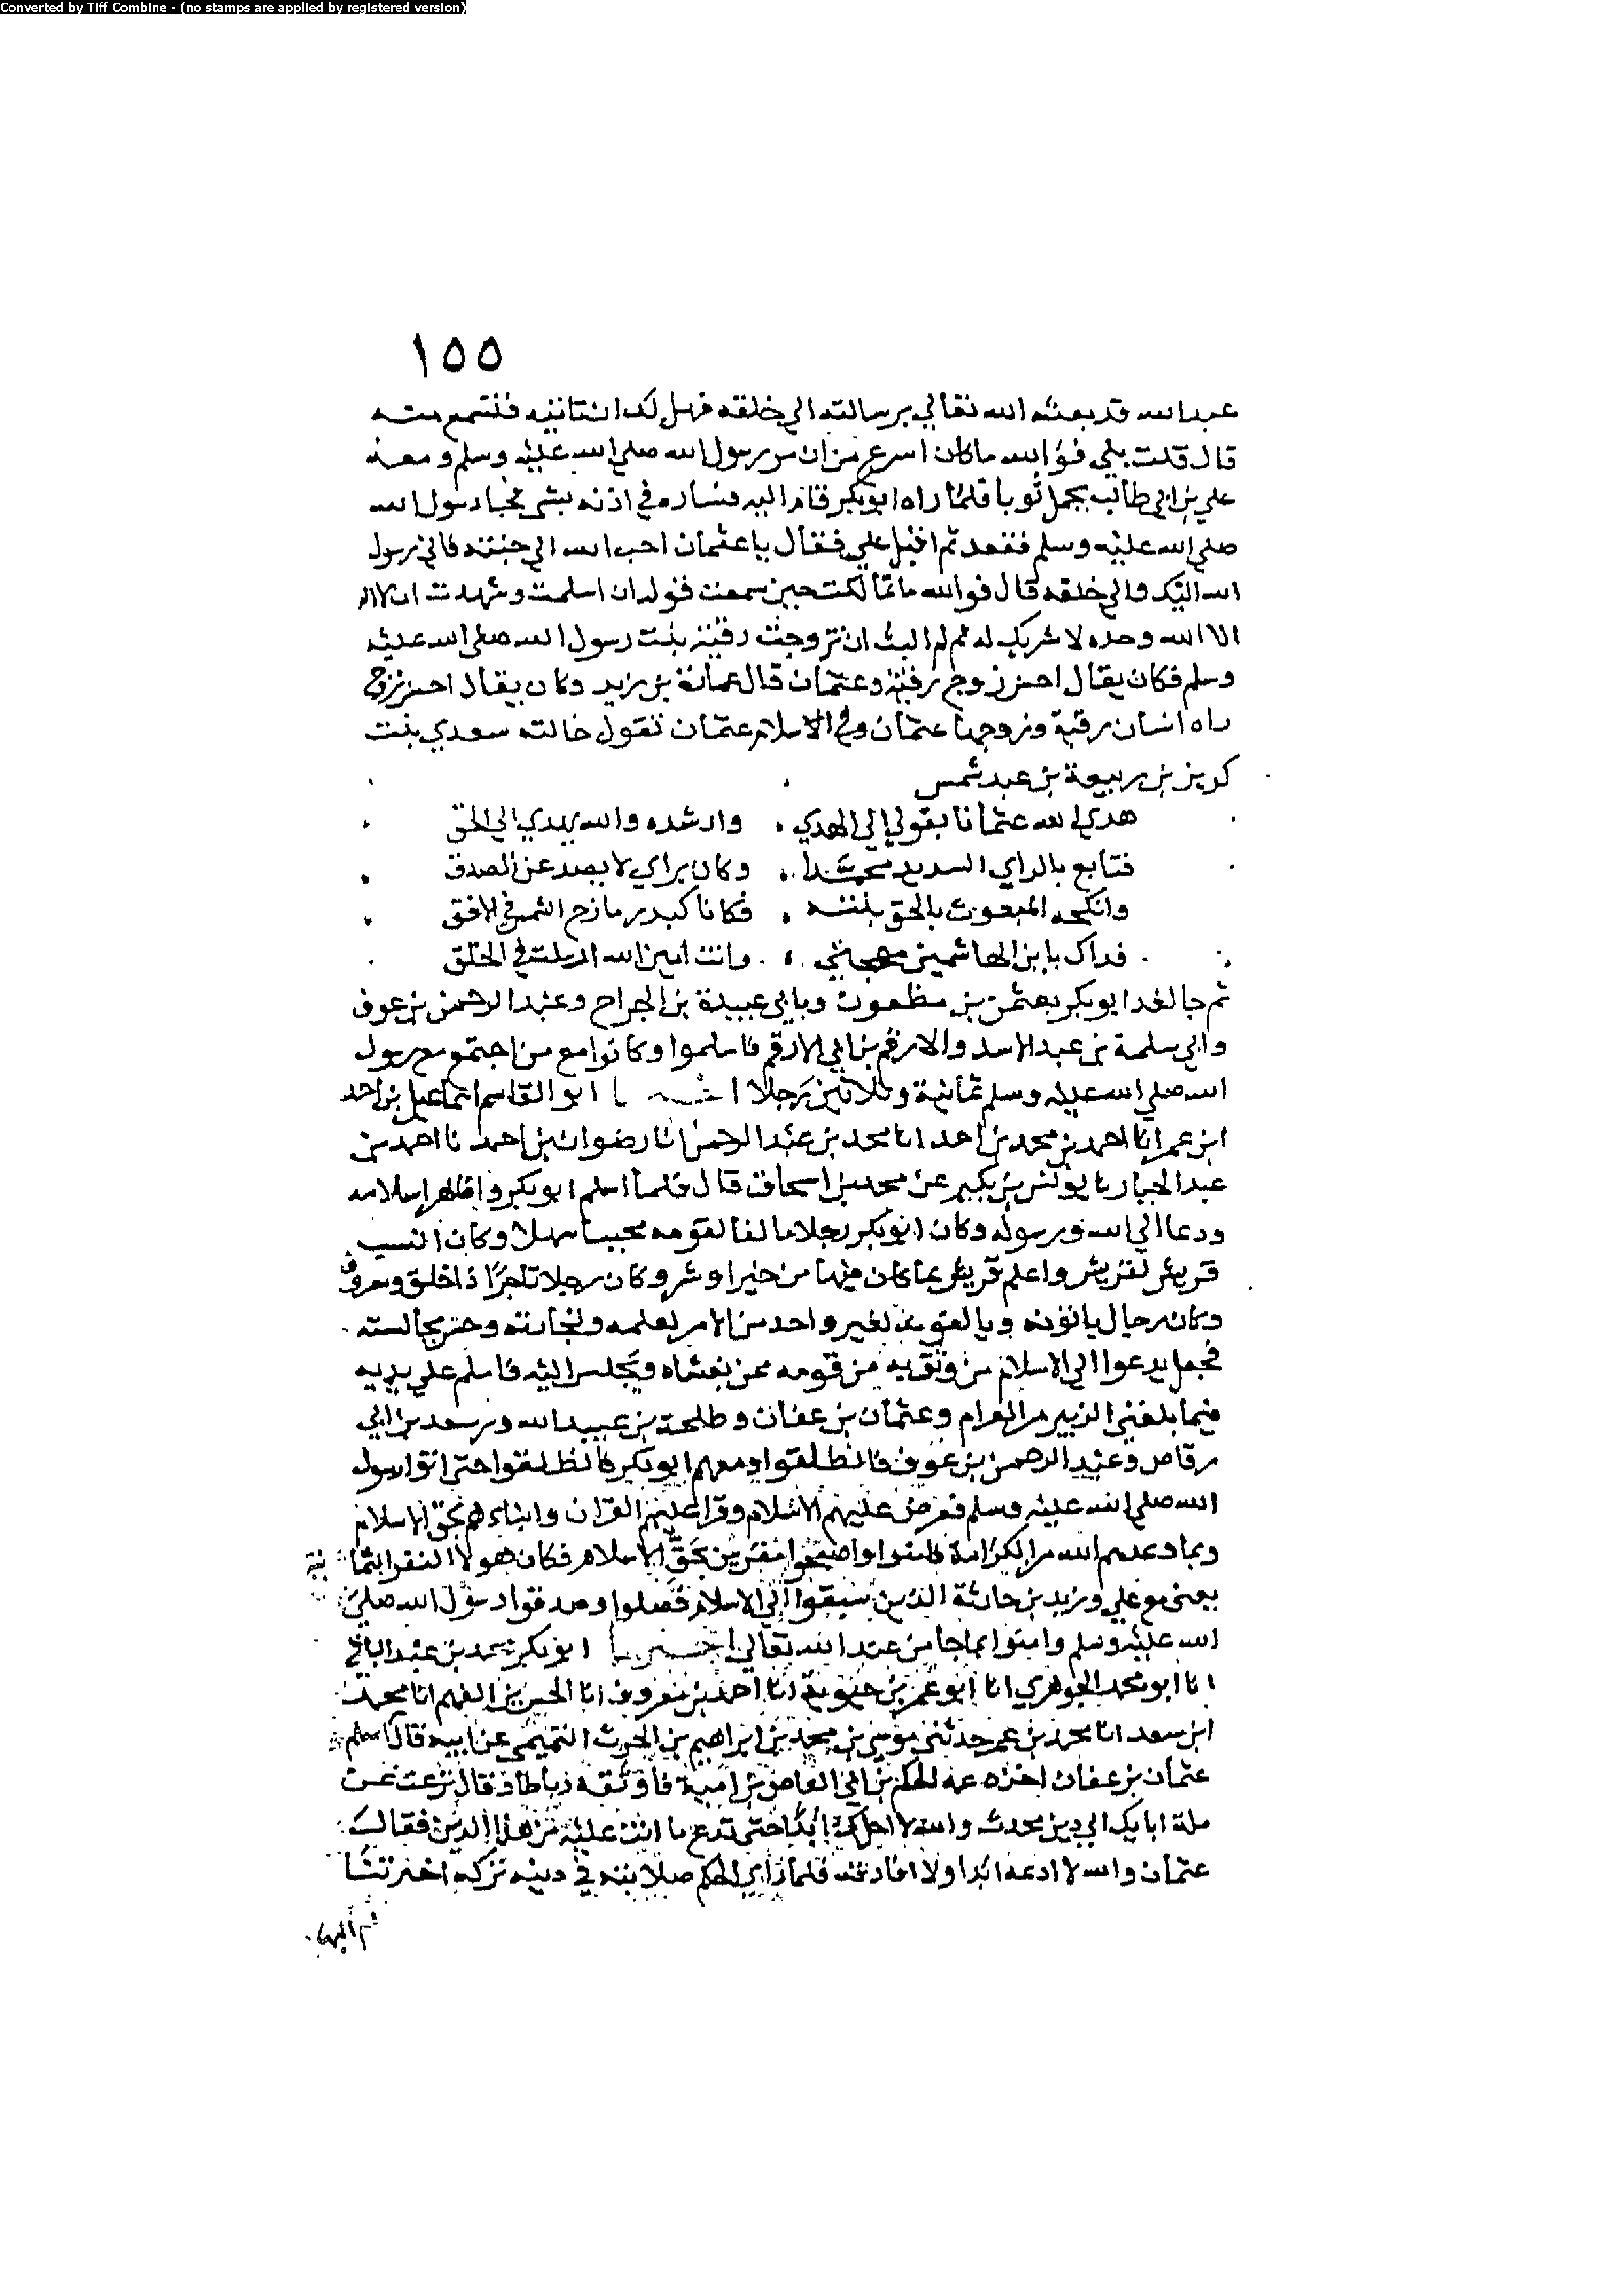 Converted by Tiff Combine - (no stamps are applied by registered version)
١٥٥
عبدالله قد بعثه الله تعالي برسالته الي خلقه فهل لك ان تاتيه فتسمع منه
قال قلت بلي فوالله ماكان اسرع من ان مر رسول الله صلي الله عليه وسلم ومعه
علي بن ابي طالب يحمل ثوبا فلما راه ابو بكر قام اليه فساره في اذنه بشي فجا رسول الله
صلي الله عليه وسلم فقعد ثم اقبل علي فقال يا عثمان احب الله الي جنته فاني رسول
الله اليك والي خلقه قال فوالله ما تمالكت حين سمعت قوله ان اسلمت وشهدت ان لا اله
الا الله وحده لا شريك له ثم لم البث ان تزوجت رقية بنت رسول الله صلي الله عليه
وسلم فكان يقال احسن زوج رقية وعثمان قال عمارة بن زيد وكان يقال احسن زوج
راه انسان رقية وزوجها عثمان وفي الاسلام عثمان تقول خالته سعدي بنت
كريز بن ربيعة بن عبد شمس
هدي الله عثمانا بقولي الي الهدي . وارشده والله يهدي الي الحق
فتابع بالراي السديد محمدا . وكان براي لا يصد عن الصدق
وانكحه المبعوث بالحق بنته . فكانا كبدر مازج الشمس في الافق
فداك يا بن الهاشمين مهجتي . وانت امين الله ارسلت في الخلق
ثم جا الغد ابو بكر بعثمن بن مظعون وبابي عبيدة بن الجراح وعبد الرحمن بن عوف
وابي سلمة بن عبد الاسد والارقم بن ابي الارقم فاسلموا وكانوا مع من اجتمع مع رسول
الله صلي الله عليه وسلم ثمانية وثلاثين رجلا اخبرنا ابو القاسم اسماعيل بن احمد
ابن عمر انا احمد بن محمد بن احمد انا محمد بن عبد الرحمن انا رضوان بن احمد نا احمد بن
عبد الجبار نا يونس بن بكير عن محمد بن اسحاق قال فلما اسلم ابو بكر واظهر اسلامه
ودعا الي الله ورسوله وكان ابو بكر رجلا مالفا لقومه محببا سهلا وكان انسب
قريش لقريش واعلم قريش بما كان فيها من خير او شر وكان رجلا تاجرا ذا خلق ومعروف
وكان رجال ياتونه ويالفونه لغير واحد من الامر لعلمه وتجارته وحسن مجالسته
فجعل يدعوا الي الاسلام من وثق به من قومه ممن يغشاه ويجلس اليه فاسلم علي يديه
فيما بلغني الزبير بن العوام وعثمان بن عفان وطلحة بن عبيد الله وسعد بن ابي
وقاص وعبد الرحمن بن عوف فانطلقوا ومعهم ابو بكر فانطلقوا حتي اتوا رسول
الله صلي الله عليه وسلم فعرض عليهم الاسلام وقرا عليهم القران وانباءهم بحق الاسلام
وبما وعدهم الله من الكرامة فامنوا واصبحوا مقرين بحق الاسلام فكان هولا النفر الثمانية
يعني مع علي وزيد بن حارثة الذين سبقوا الي الاسلام فصلوا وصدقوا رسول الله صلي
الله عليه وسلم وامنوا بما جا من عند الله تعالي اخبرنا ابو بكر محمد بن عبد الباقي
انا ابو محمد الجوهري انا ابو عمر بن حيوية انا احمد بن معروف انا الحسين بن الفهم انا محمد
ابن سعد انا محمد بن عمر حدثني موسي بن محمد بن ابراهيم بن الحرث التميمي عن ابيه قال لما اسلم
عثمان بن عفان اخذه عمه الحكم بن ابي العاص بن امية فاوثقه رباطا وقال ترغب عن
ملة ابايك الي دين محدث والله لا احلك ابدا حتي تدع ما انت عليه من هذا الدين فقال
عثمان والله لا ادعه ابدا ولا افارقه فلما راي الحكم صلابته في دينه تركه اخبرتنا
ام البها